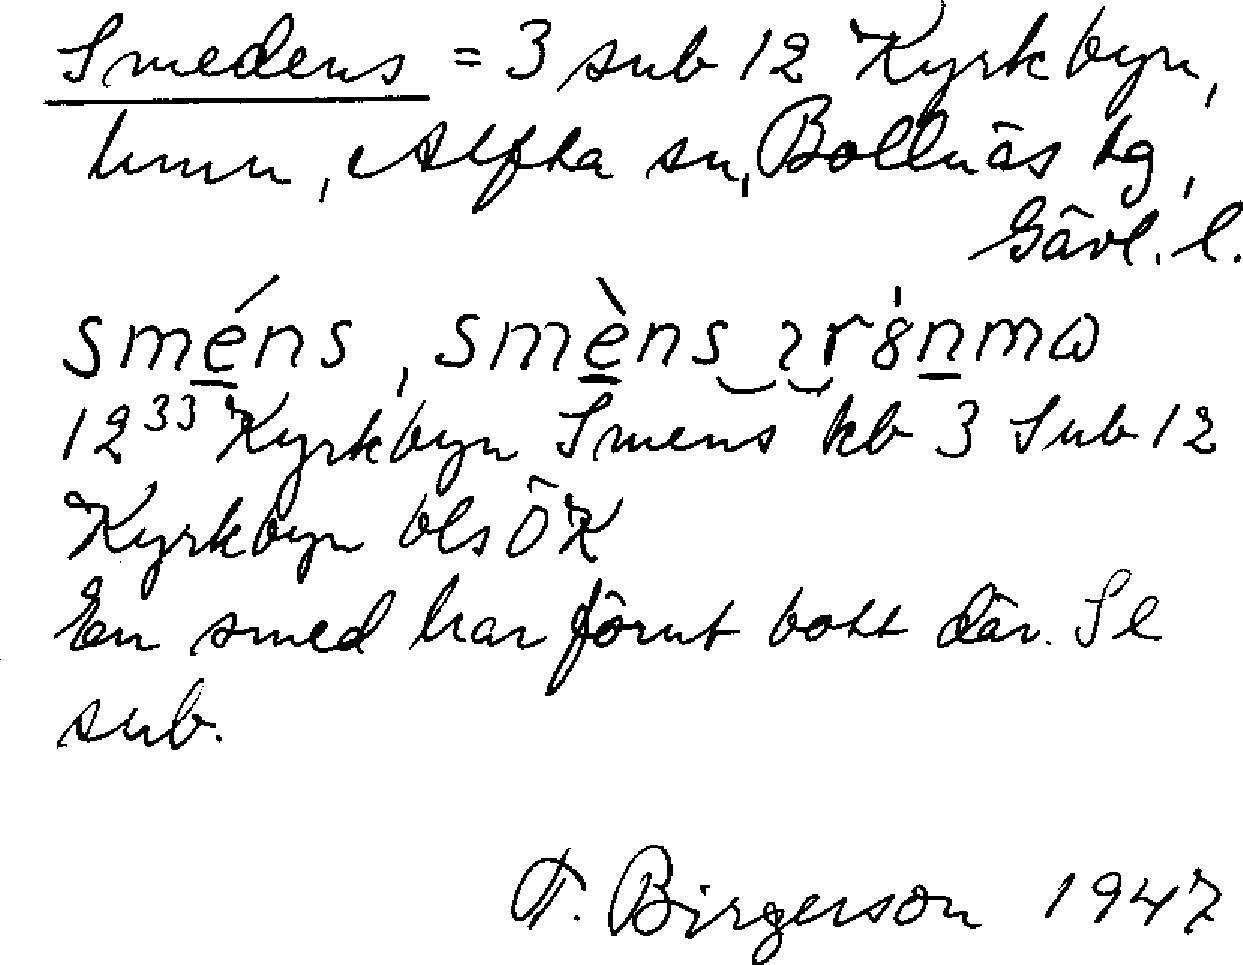 Smedens = 3 sub 12 Kyrkbyn,
hmn, Alfta sn, Bollnäs tg,
Gävl. l.
sméns, smèns
12³³ Kyrkbyn Smens kb 3 Sub 12
Kyrkbyn bls ÖK
En smed har förut bott där. Se
sub.
F. Birgerson 1947